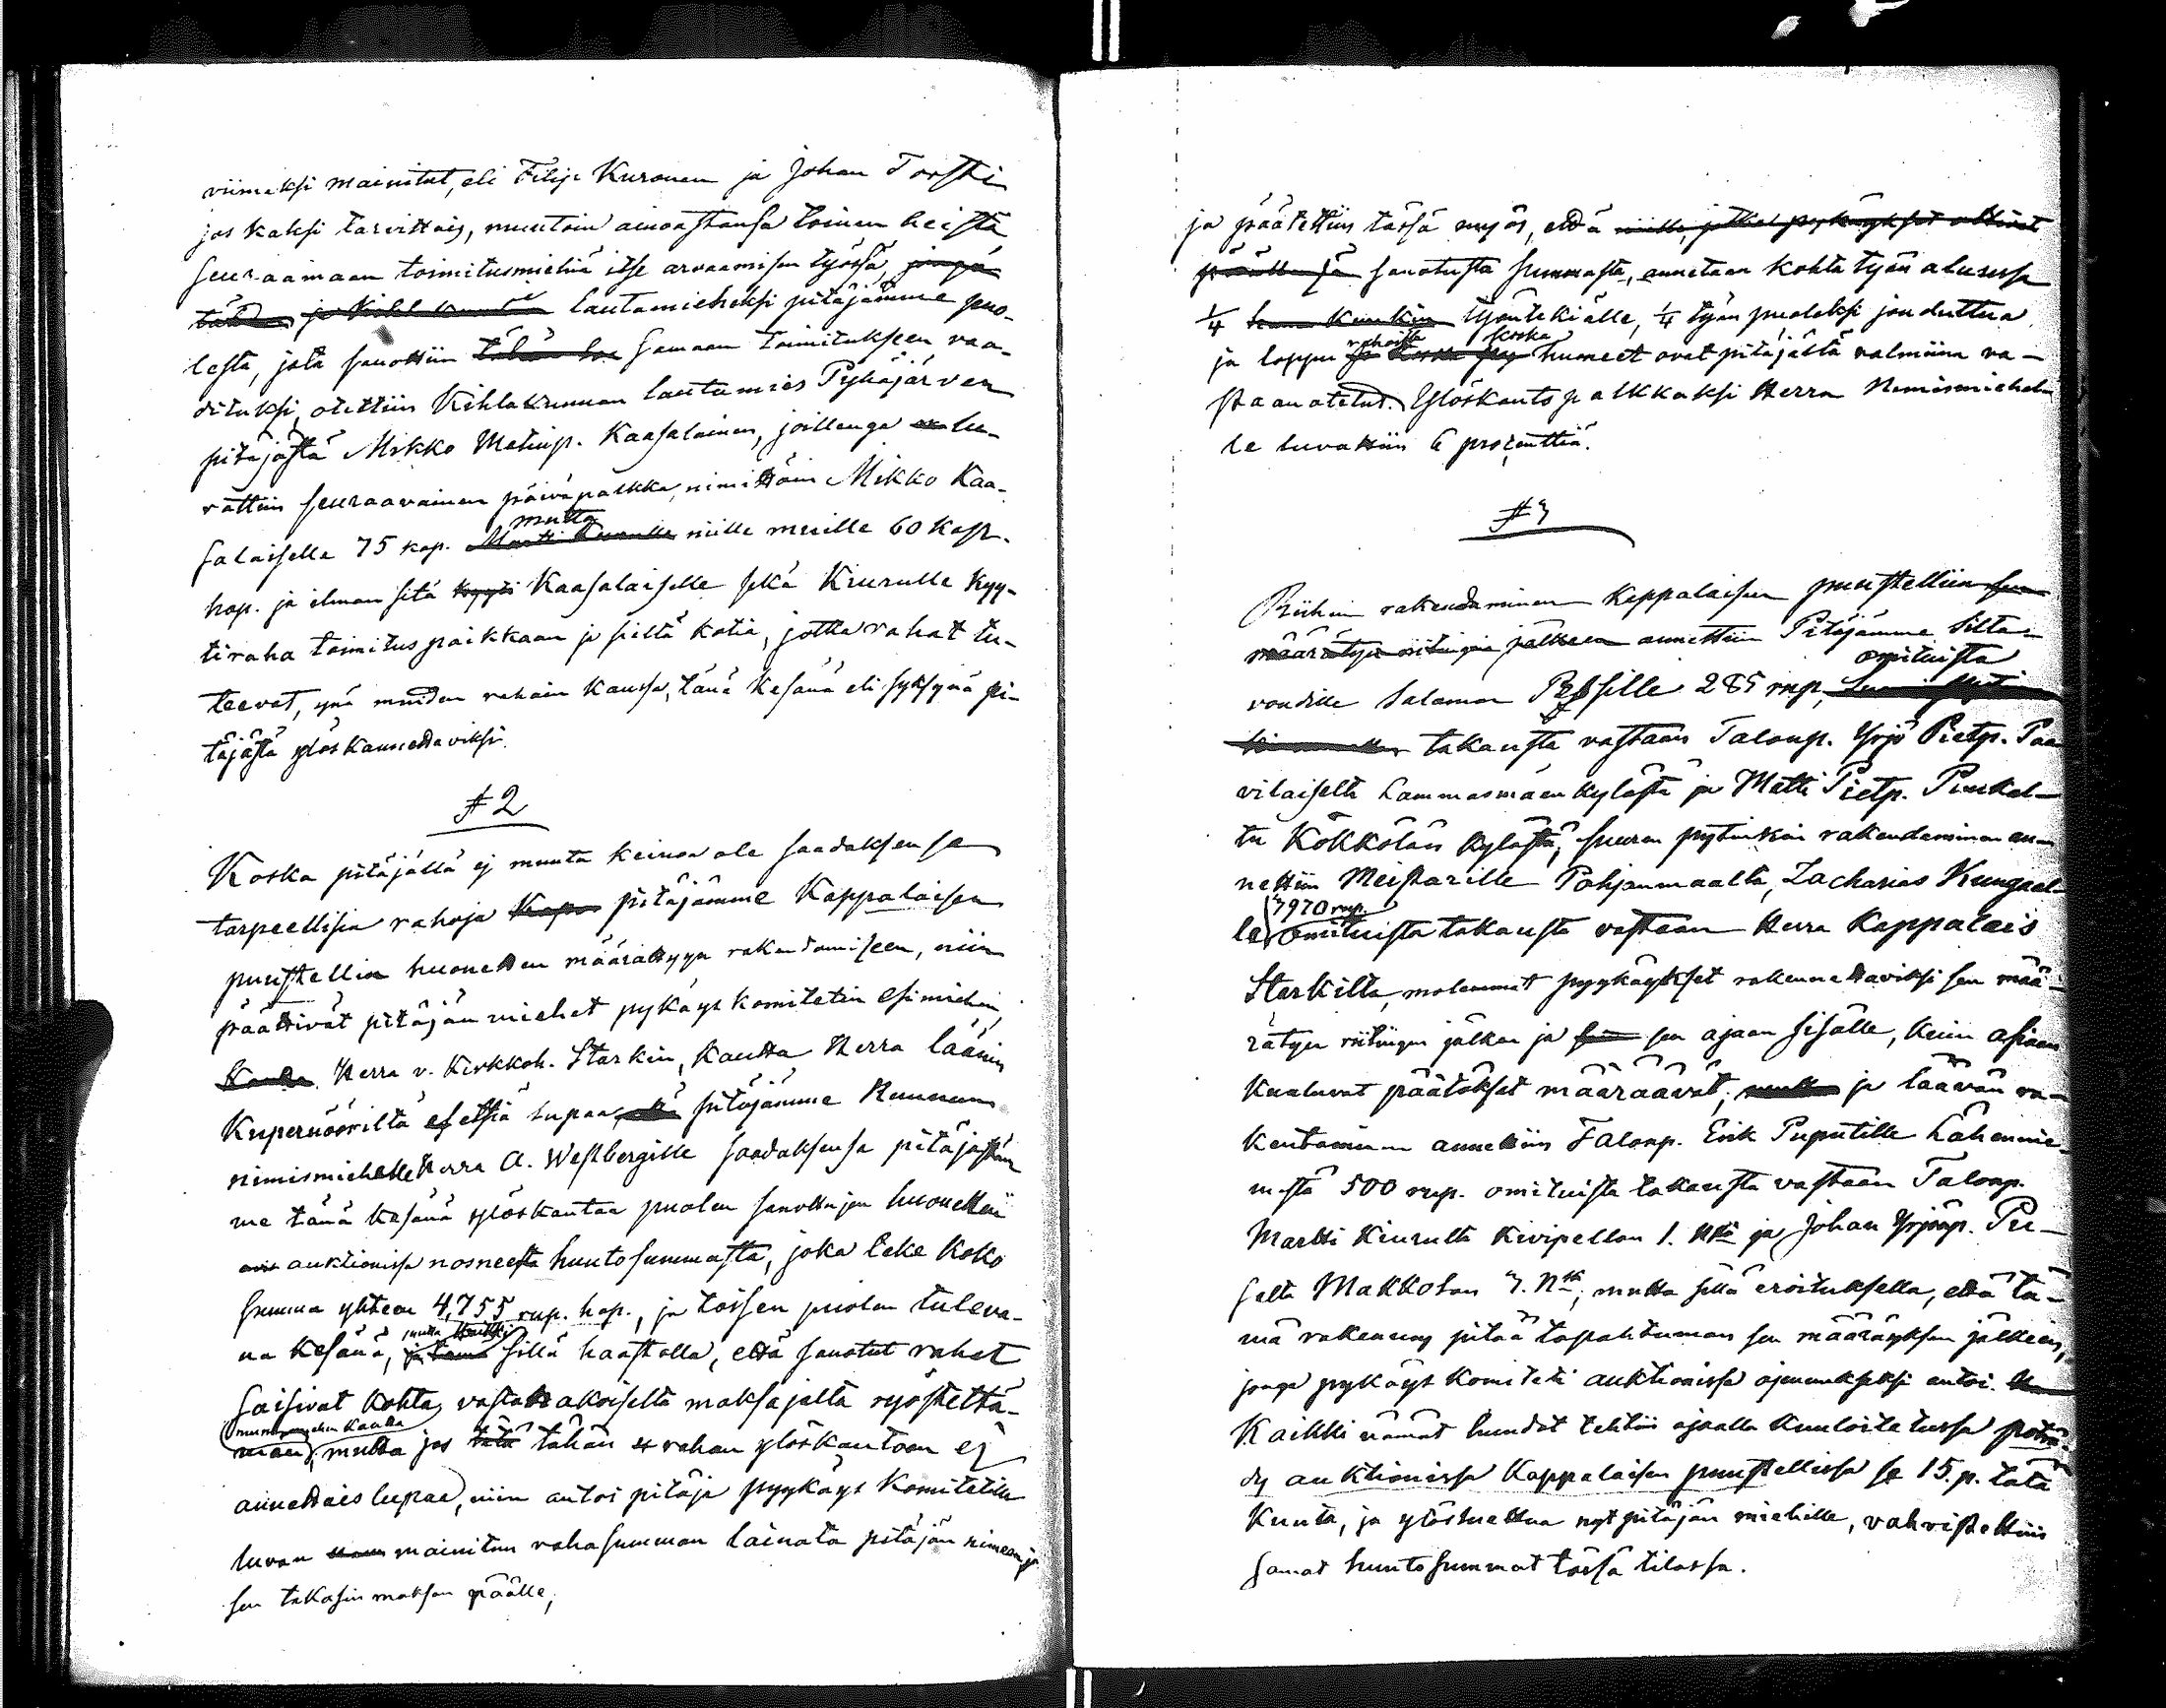 viimeksi mainitut, eli Filip Kuronen ja Johan Torsti
jos kaksi tarvittais, muutoin ainoastansa toinen heistä
seuraamaan toimitusmiehiä itse arvaamisen työssä,
lautamieheksi pitäjämme puo-
lesta, jota sanottiin samaan toimitukseen vaa-
dituksi, otettiin Kihlakunnan lautamies Pyhäjärven
pitäjästä Mikko Matinp. Kaasalainen, joillenga lu-
vattiin seuraavainen päiväpalkka, nimittäin Mikko Kaa-
mutta
salaiselle 75 kop. niille muille 60 kop.
hop. ja ilman sitä Kaasalaiselle sekä Kiurulle kyy-
tiraha toimitus paikkaan ja sieltä kotia, jotka rahat tu-
leevat, ynä muiden rahain kanssa, tänä kesänä eli syksynä pi-
täjästä ylöskannettaviksi.
# 2
Koska pitäjällä ej muuta keinoa ole saadaksensa
tarpeellisia rahoja pitäjämme Kappalaisen
puustellin huonetten määrättyyn rakendamiseen, niin
päättivät pitäjän miehet pykäys komitetin esimiehen,
Herra v. Kirkkoh. Starkin, kautta Herra läänin
Kupernöörilta etsiä lupaa pitäjämme Ruunun
nimismiehelle Herra A. Westbergille saadaksensa pitäjästäm
me tänä kesänä ylöskantaa puolen sanottujen huonetten
auktionissa nosneesta huutosummasta, joka teke koko
summa yhteen 4,755 rup. hop., ja toissen puolen tuleva-
mutta
na kesänä, sillä haastolla, että sanotut rahat
saisivat kohta vastahakoiselta maksajalta ryöstettä-
kautta
män, mutta jos tähän rahan ylöskantoon ej
annettais lupaa, niin antoi pitäjä pyykäys komitetille
luvan mainitun rahasumman lainata pitäjän nimeen ja
sen takasin maksan päälle,
ja päätettiin tässä myös, että niille, jotka pykäykset ottivat
päälle sanotusta summasta, annetaan kohta työn alusessa
1/4 työntekiälle, 1/4 työn puoleksi jouduttua
rahoista koska
ja loppu huoneet ovat pitäjältä valmiina va-
staanotetut. Ylöskantopalkkaksi Herra Nimismiehel-
le luvattiin 6 prozenttiä.
# 3
Riihin rakendaminen Kappalaisen puustelliin
määrätyn riitingin jälkeen annettiin Pitäjämme Silta-
omituista
voudille Salamon Pessille 285 rup,
takausta vastaan Talonp. Yrjö Pietp. Paa
vilaiselta Lammasmäen kylästä ja Matti Pietp. Pinkal-
ta Kökkölän kylästä, suuren pytinkin rakendaminen an-
nettiin Meistarille Pohjanmaalta, Zacharias Kungaal-
3970 rup.
le omituista takausta vastaan Herra Kappalais
Starkilta, molemmat pyykäykset rakennettaviksi sen mää-
rätyn riitingin jälken ja sen ajaan sisälle, kuin asiaan
kuuluvat päätökset määräävät, ja läävän ra-
kentaminen annettiin Talonp. Erik Puputille Lähenmie-
mstä 500 rup. omituista takausta vastaan Talonp.
Martti Kiurulta Kivipellon 1. Nsta ja Johan Yrjönp. Pu-
selta Makkolan 3. Nsta, mutta sillä eroituksella, että tä-
mä rakennus pitää tapahtuman sen määräyksen jälkeen,
jonga pykäys Komiteti auktionissa ojennukseksi antoi.
Kaikki nämät huudot tehtiin ajalla kuuloitetussa pötä-
dy auktionissa Kappalaisen puustellissa se 15. p. tätä
Kuuta, ja ylösluettua nyt pitäjän miehille, vahvistettiin
samat huutosummat tässä tilassa.